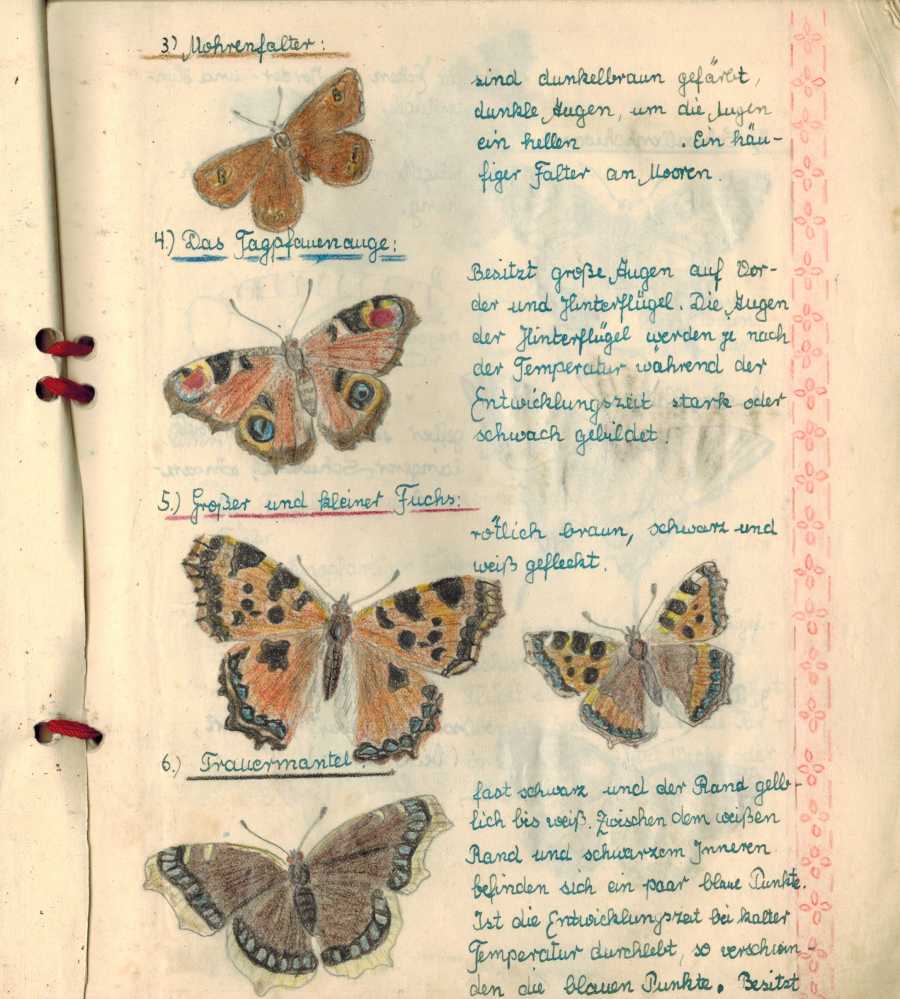 3) Mohrenfalter:
sind dunkelbraun gefärbt,
dunkle Augen, um die Augen
ein hellen . Ein häu-
figer Falter an Mooren.
4.) Das Tagpfauenauge:
Besitzt große Augen auf Vor-
der und Hinterflügel. Die Augen
der Hinterflügel werden je nach
der Temperatur während der
Entwicklungszeit stark oder
schwach gebildet.
5.) Großer und kleiner Fuchs:
rötlich braun, schwarz und
weiß gefleckt.
6.) Trauermantel
fast schwarz und der Rand gelb-
lich bis weiß. Zwischen dem weißen
Rand und schwarzem Inneren
befinden sich ein paar blaue Punkte.
Ist die Entwicklungszeit bei kalter
Temperatur durchlebt, so verschwin-
den die blauen Punkte. Besitzt